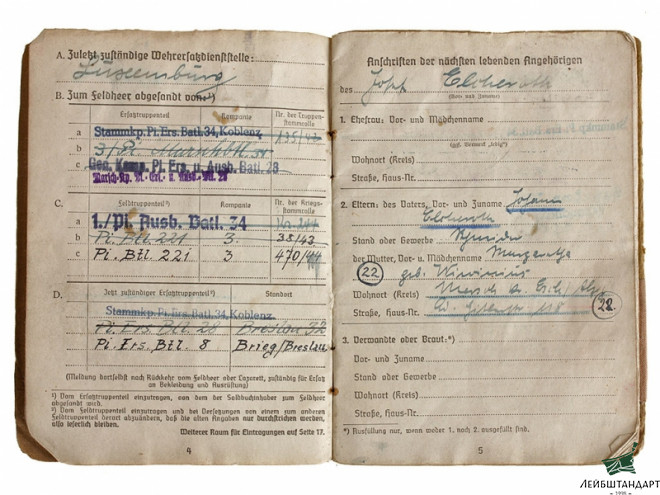 A. Zuletzt zuständige Wehrersatzdienststelle:
Luxemburg
B. Zum Feldheer abgesandt von:¹)
Ersatztruppenteil Kompanie Nr. der Truppen-
stammrolle
a Stammkp. Pi. Ers. Batl. 34, Koblenz 135/42
b
c Gen. Komp. Pi. Ers. u. Ausb. Batl. 28
C.
Feldtruppenteil²) Kompanie Nr. der Kriegs-
stammrolle
a 1./Pi. Ausb. Batl. 34
b Pi. Btl. 221 3. 38/43
c Pi. Btl. 221 3. 470/44
D.
Jetzt zuständiger Ersatztruppenteil²) Standort
Stammkp. Pi. Ers. Batl. 34, Koblenz.
Pi. Ers. Btl. 28 Breslau 32
Pi. Ers. Btl. 8 Brieg/Breslau
(Meldung dortselbst nach Rückkehr vom Feldheer oder Lazarett, zuständig für Ersatz
an Bekleidung und Ausrüstung)
¹) Vom Ersatztruppenteil einzutragen, von dem der Soldbuchinhaber zum Feldheer
abgesandt wird.
²) Vom Feldtruppenteil einzutragen und bei Versetzungen von einem zum anderen
Feldtruppenteil derart abzuändern, daß die alten Angaben nur durchstrichen werden,
also leserlich bleiben.
Weiterer Raum für Eintragungen auf Seite 17.
4
Anschriften der nächsten lebenden Angehörigen
des
(Vor- und Zuname)
1. Ehefrau: Vor- und Mädchenname
(ggf. Vermerk „ledig“)
Wohnort (Kreis)
Straße, Haus-Nr.
2. Eltern: des Vaters, Vor- und Zuname Johann
Stand oder Gewerbe
der Mutter, Vor- u. Mädchenname Margaretha
22 geb.
Wohnort (Kreis)
Straße, Haus-Nr. 22
3. Verwandte oder Braut:*)
Vor- und Zuname
Stand oder Gewerbe
Wohnort (Kreis)
Straße, Haus-Nr.
*) Ausfüllung nur, wenn weder 1. noch 2. ausgefüllt sind.
5
ЛЕЙБШТАНДАРТ